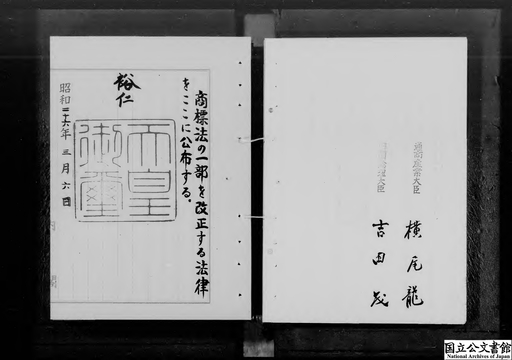 商標法の一部を改正する法律
をここに公布する。
裕仁
天皇御璽
昭和二十六年三月六日
通商産業大臣 横尾龍
内閣総理大臣 吉田茂
国立公文書館
National Archives of Japan